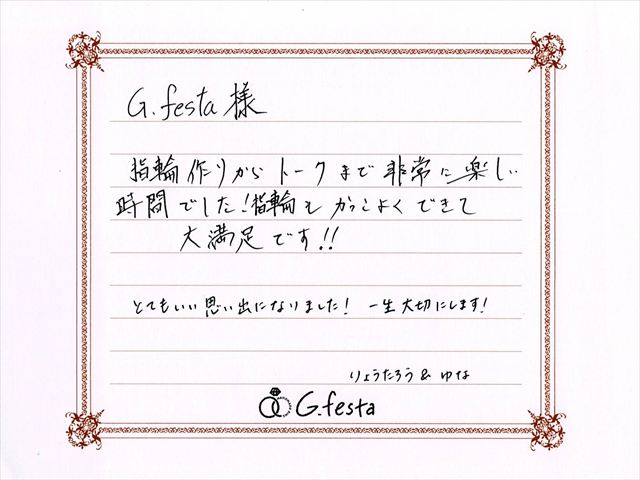 G.festa様
指輪作りからトークまで非常に楽しい
時間でした!指輪もかっこよくできて
大満足です!!
とてもいい思い出になりました! 一生大切にします!
りょうたろう & ゆな
G.festa